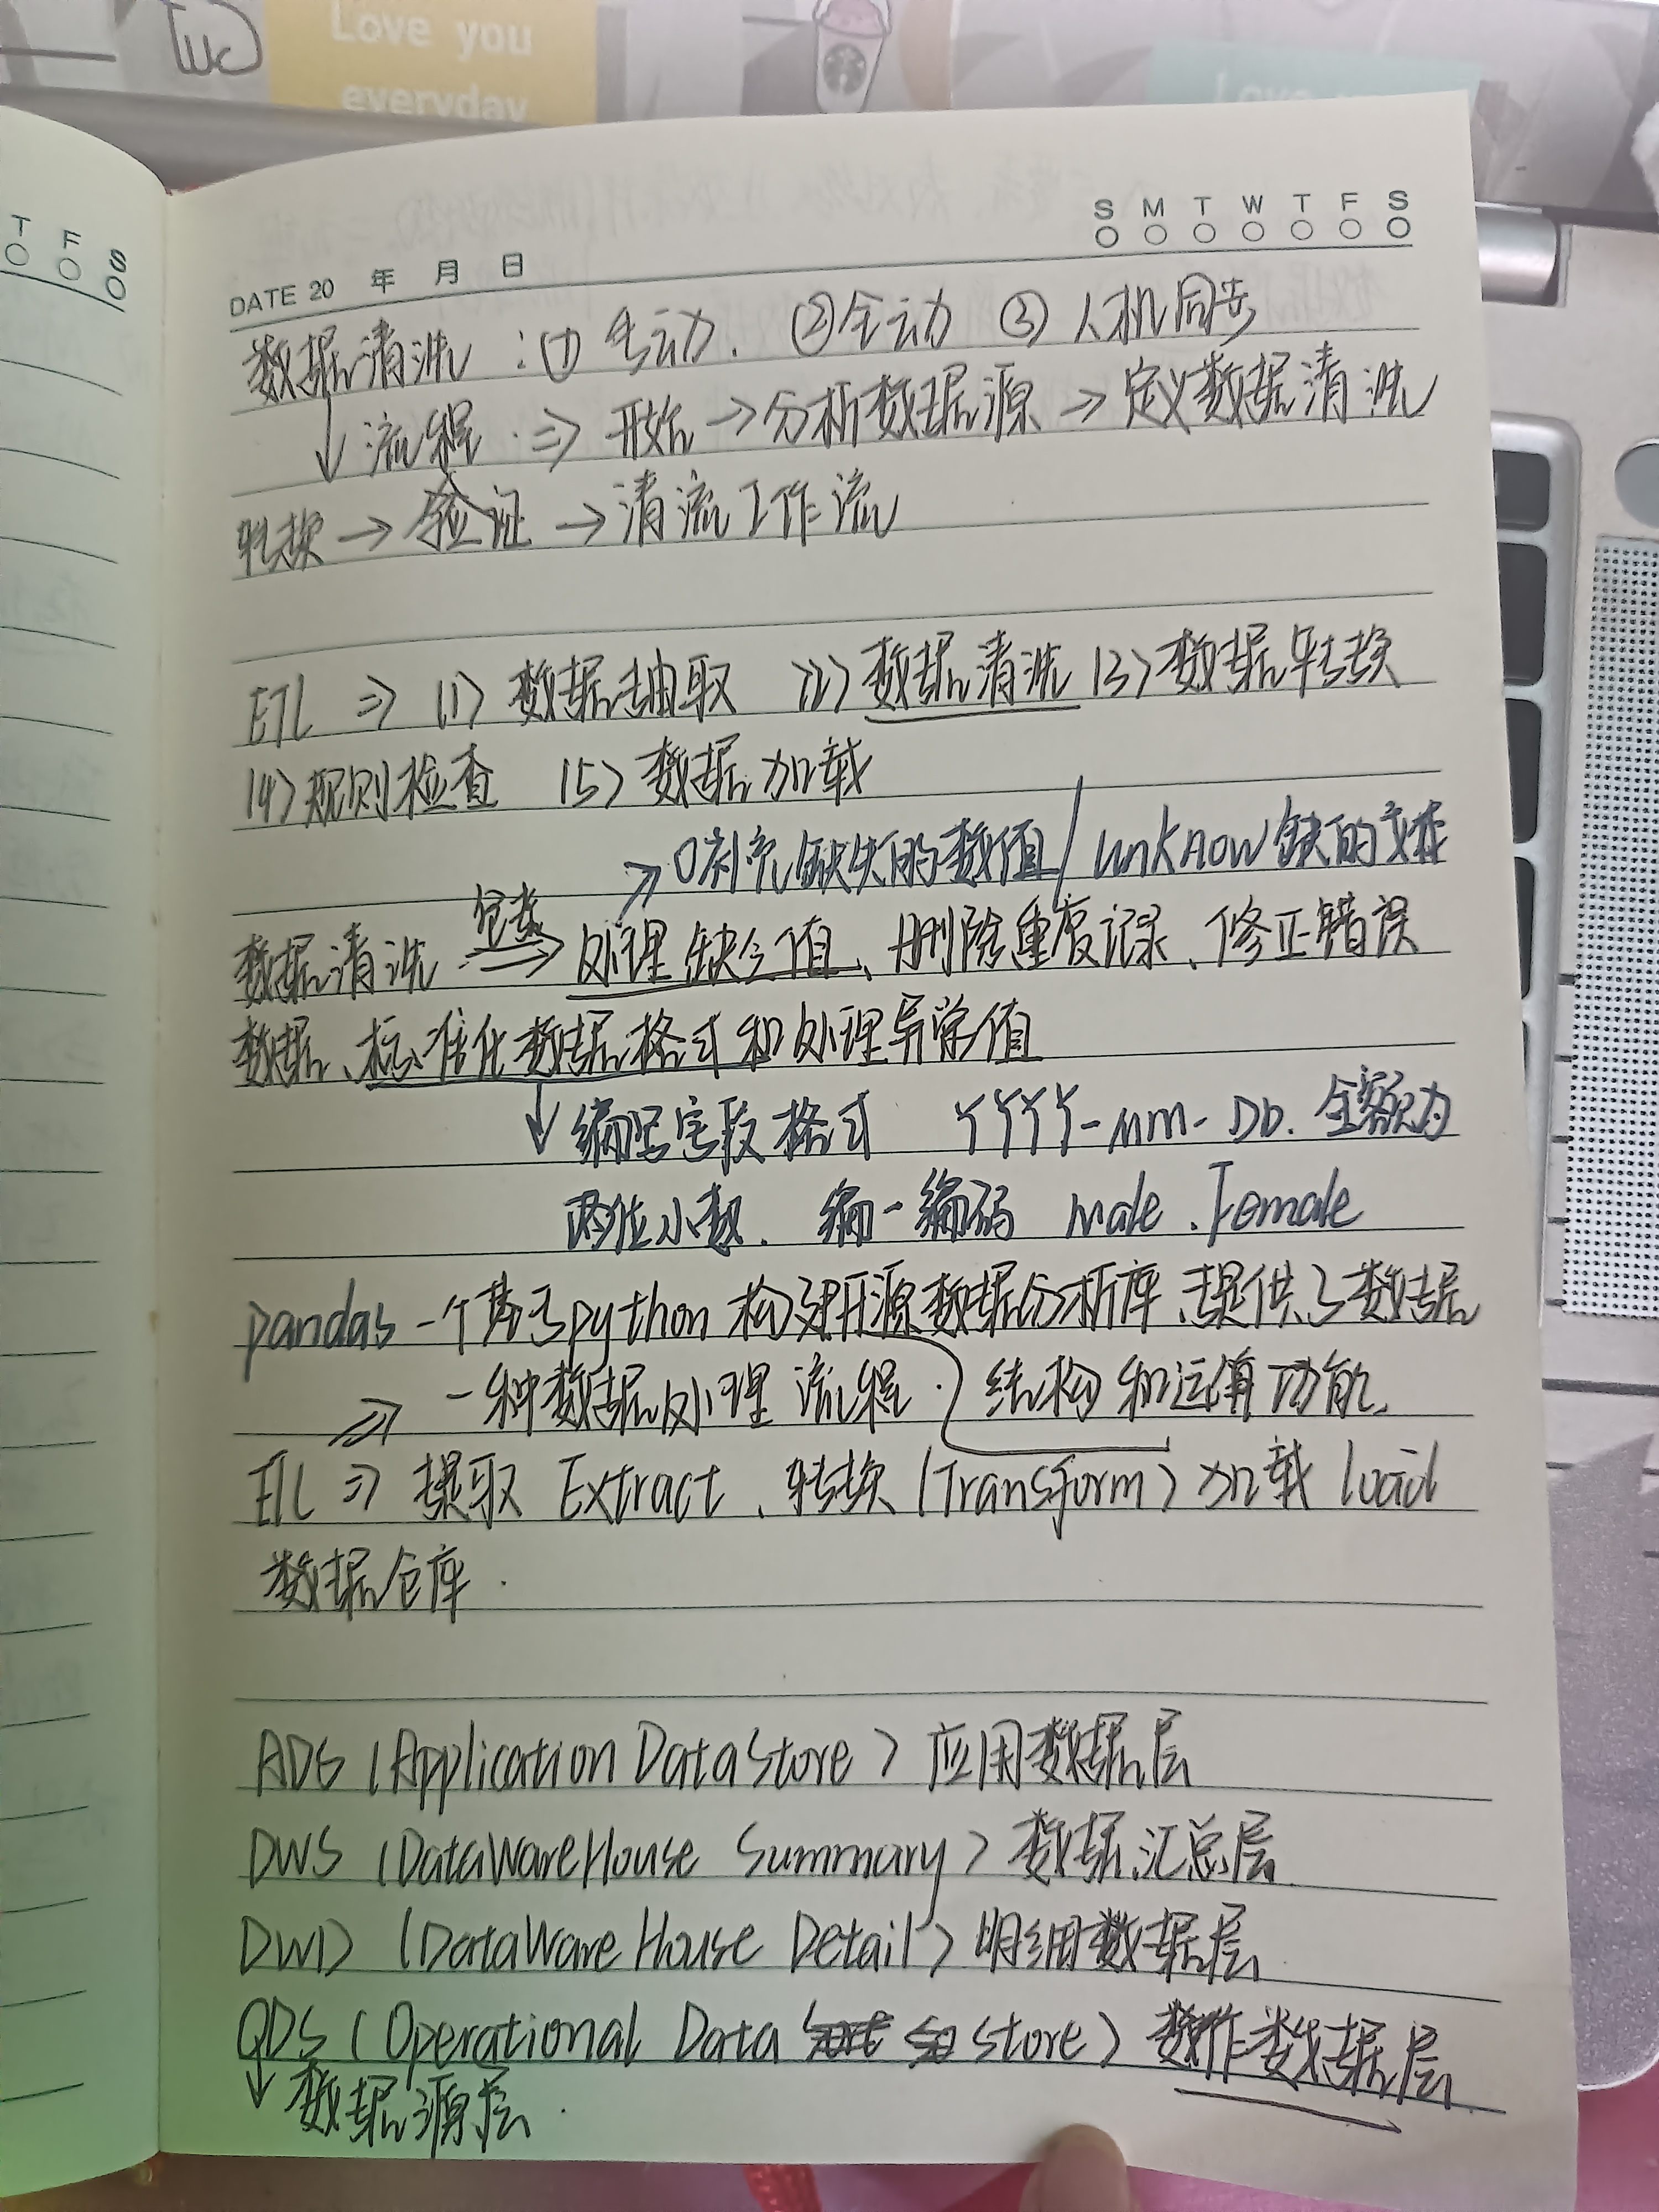 Love you
everyday
T F S
S M T W T F S
DATE 20 年 月 日
数据清洗：① 手动. ②全动 ③ 人机同步
↓ 流程 ⇒ 开始 → 分析数据源 → 定义数据清洗
转换 → 验证 → 清流工作流
ETL ⇒ (1) 数据抽取 (2) 数据清洗 (3) 数据转换
(4) 规则检查 (5) 数据加载
→ 0补充缺失的数值 / unknow 缺的文本
包装
数据清洗 ⇒ 处理缺失值、删除重复记录、修正错误
数据、标准化数据格式和处理异常值
↓ 编写字段格式 YYYY-MM-DD. 金额为
两位小数. 编一编码 male . Female
pandas 一个基于python 构建开源数据分析库、提供了数据
⇒ 一种数据处理流程. 结构和运算功能.
ETL ⇒ 提取 Extract、转换 (Transform) 加载 load
数据仓库.
ADS (Application DataStore) 应用数据层
DWS (DataWareHouse Summary) 数据汇总层
DWD (DataWareHouse Detail) 明细数据层
ODS (Operational Data store) 数作数据层
↓ 数据源层.